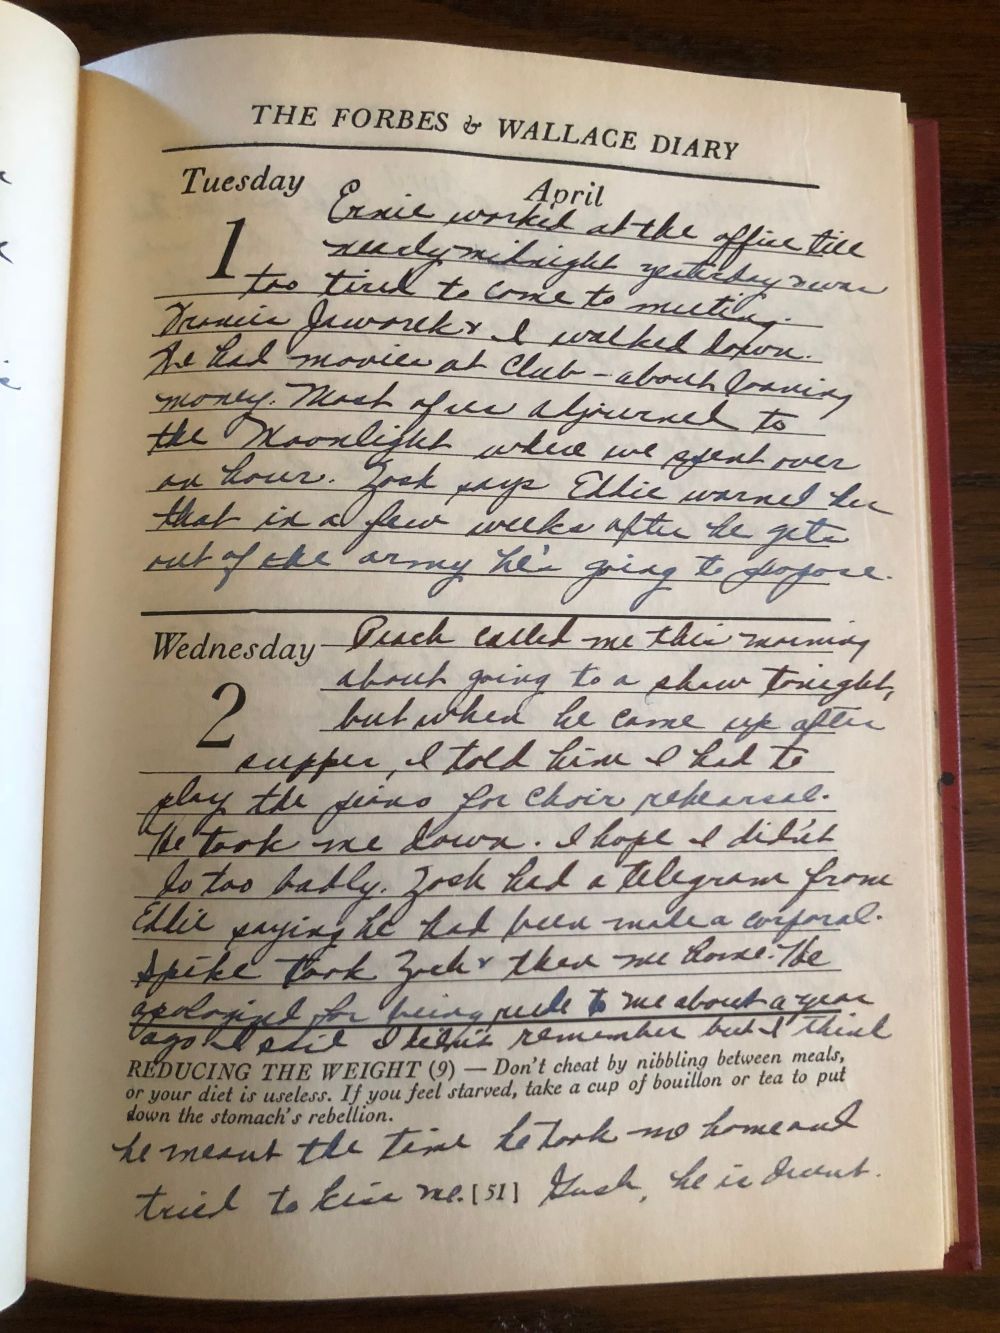 THE FORBES & WALLACE DIARY
Tuesday April
1
Ernie worked at the office till
nearly midnight yesterday & was
too tired to come to meeting.
Francis Jaworek & I walked down.
We had movies at Club - about loaning
money. Most of us adjourned to
the Moonlight where we spent over
an hour. Zosh says Eddie warned her
that in a few weeks after he gets
out of the army he's going to propose.
Wednesday
2
Peach called me this morning
about going to a show tonight,
but when he came up after
supper, I told him I had to
play the piano for choir rehearsal.
He took me down. I hope I didn't
do too badly. Zosh had a telegram from
Eddie saying he had been made a corporal.
Spike took Zosh & then me home. He
apologized for being rude to me about a year
ago. I said I didn't remember but I think
REDUCING THE WEIGHT (9) — Don't cheat by nibbling between meals,
or your diet is useless. If you feel starved, take a cup of bouillon or tea to put
down the stomach's rebellion.
he meant the time he took me home and
tried to kiss me. [51] Gosh, he is decent.